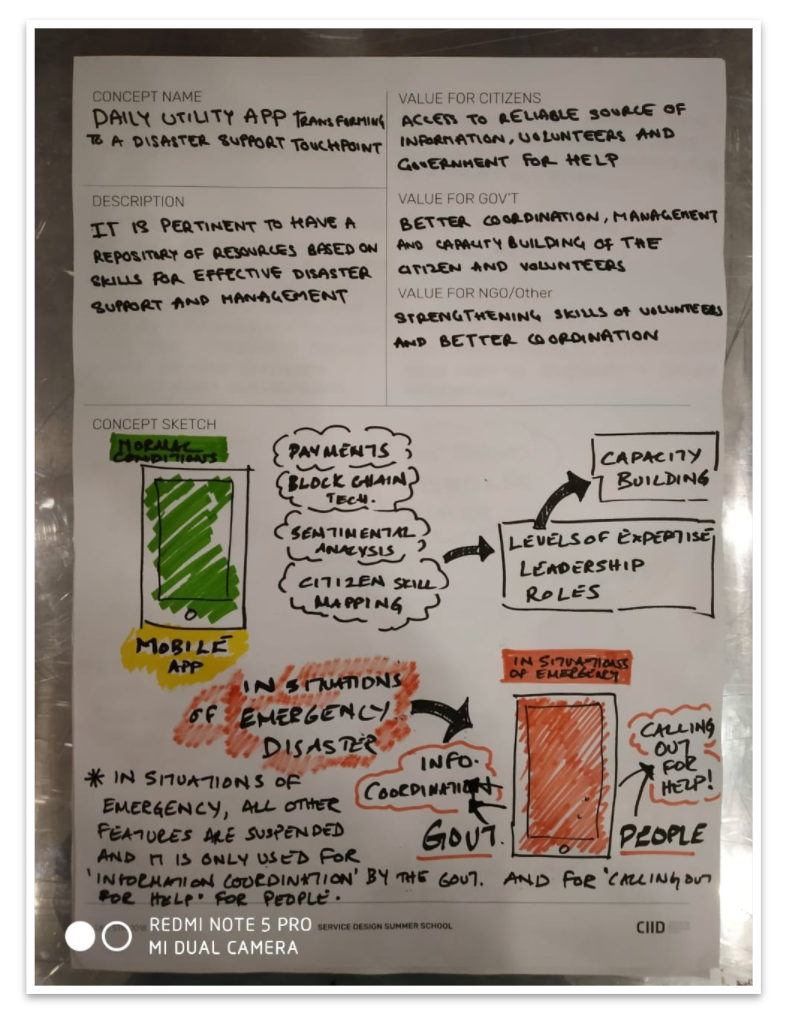 CONCEPT NAME
DAILY UTILITY APP TRANSFORMING
TO A DISASTER SUPPORT TOUCHPOINT
DESCRIPTION
IT IS PERTINENT TO HAVE A
REPOSITORY OF RESOURCES BASED ON
SKILLS FOR EFFECTIVE DISASTER
SUPPORT AND MANAGEMENT
VALUE FOR CITIZENS
ACCESS TO RELIABLE SOURCE OF
INFORMATION, VOLUNTEERS AND
GOVERNMENT FOR HELP
VALUE FOR GOV'T
BETTER COORDINATION, MANAGEMENT
AND CAPACITY BUILDING OF THE
CITIZEN AND VOLUNTEERS
VALUE FOR NGO/Other
STRENGTHENING SKILLS OF VOLUNTEERS
AND BETTER COORDINATION
CONCEPT SKETCH
NORMAL
CONDITIONS
MOBILE
APP
PAYMENTS
BLOCK CHAIN
TECH.
SENTIMENTAL
ANALYSIS
CITIZEN SKILL
MAPPING
LEVELS OF EXPERTISE
LEADERSHIP
ROLES
CAPACITY
BUILDING
IN SITUATIONS
OF EMERGENCY
DISASTER
IN SITUATIONS
OF EMERGENCY
INFO.
COORDINATION
GOVT.
PEOPLE
CALLING
OUT
FOR
HELP!
* IN SITUATIONS OF
EMERGENCY, ALL OTHER
FEATURES ARE SUSPENDED
AND IT IS ONLY USED FOR
'INFORMATION COORDINATION' BY THE GOVT. AND FOR 'CALLING OUT
FOR HELP' FOR PEOPLE.
SERVICE DESIGN SUMMER SCHOOL
CIID
REDMI NOTE 5 PRO
MI DUAL CAMERA